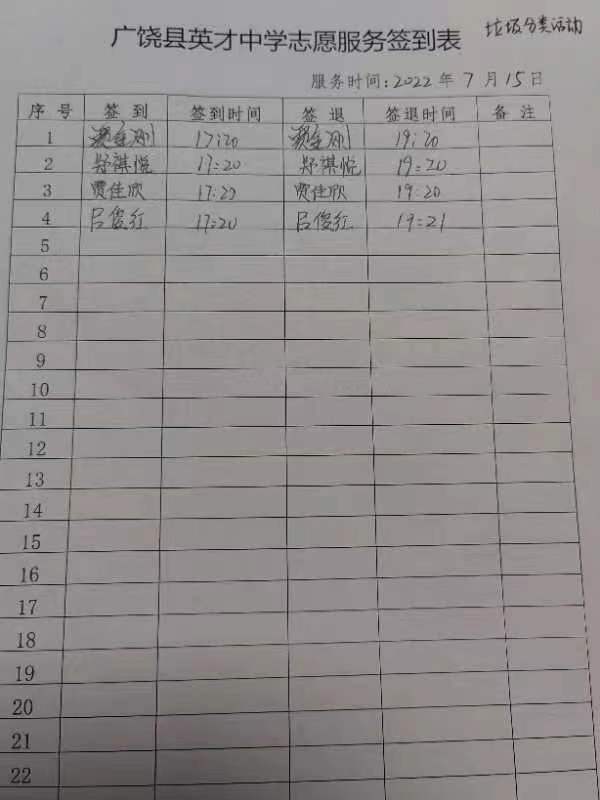 广饶县英才中学志愿服务签到表 垃圾分类活动
服务时间:2022年7月15日
序号 签到 签到时间 签退 签退时间 备注
1 17:20 19:20
2 郑祺悦 17:20 郑祺悦 19:20
3 贾佳欣 17:20 贾佳欣 19:20
4 吕俊红 17:20 吕俊红 19:21
5
6
7
8
9
10
11
12
13
14
15
16
17
18
19
20
21
22